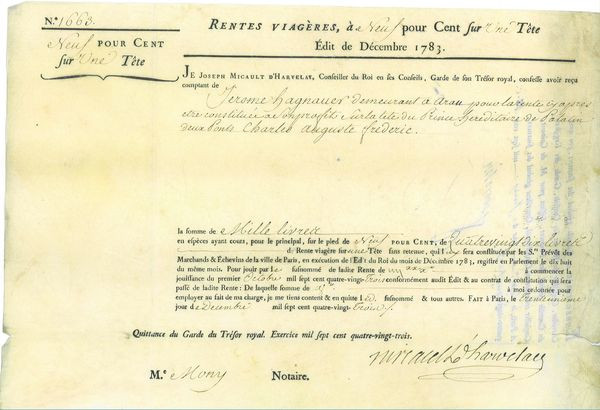 N.º 1663.
Neuf POUR CENT
sur Une Tête
RENTES VIAGÈRES, à Neuf pour Cent sur Une Tête
Édit de Décembre 1783.
JE JOSEPH MICAULT D'HARVELAY, Conseiller du Roi en ses Conseils, Garde de son Trésor royal, confesse avoir reçu
comptant de
Jerome hagnauer demeurant à arau pour la rente cy après
etre constituée à son profit sur la tete du Prince héréditaire de Palatin
deux Ponts Charles auguste frederic.
la somme de Mille livres
en espèces ayant cours, pour le principal, sur le pied de Neuf POUR CENT, de Quatre vingt dix livres
de Rente viagère sur une Tête sans retenue, qui sera constituée par les S.rs Prévôt des
Marchands & Échevins de la ville de Paris, en exécution de l'Édit du Roi du mois de Décembre 1783, registré en Parlement le dix huit
du même mois. Pour jouir par le susnommé de ladite Rente de à commencer la
jouissance du premier Octobre mil sept cent quatre-vingt-trois conformément audit Édit & au contrat de constitution qui sera
passé de ladite Rente: De laquelle somme de à moi ordonnée pour
employer au fait de ma charge, je me tiens content & en quitte le d. susnommé & tous autres. FAIT à PARIS, le trente unieme
jour de Decembre mil sept cent quatre-vingt-trois.
Quittance du Garde du Trésor royal. Exercice mil sept cent quatre-vingt-trois.
Micault d'harvelay
M.e Mony Notaire.